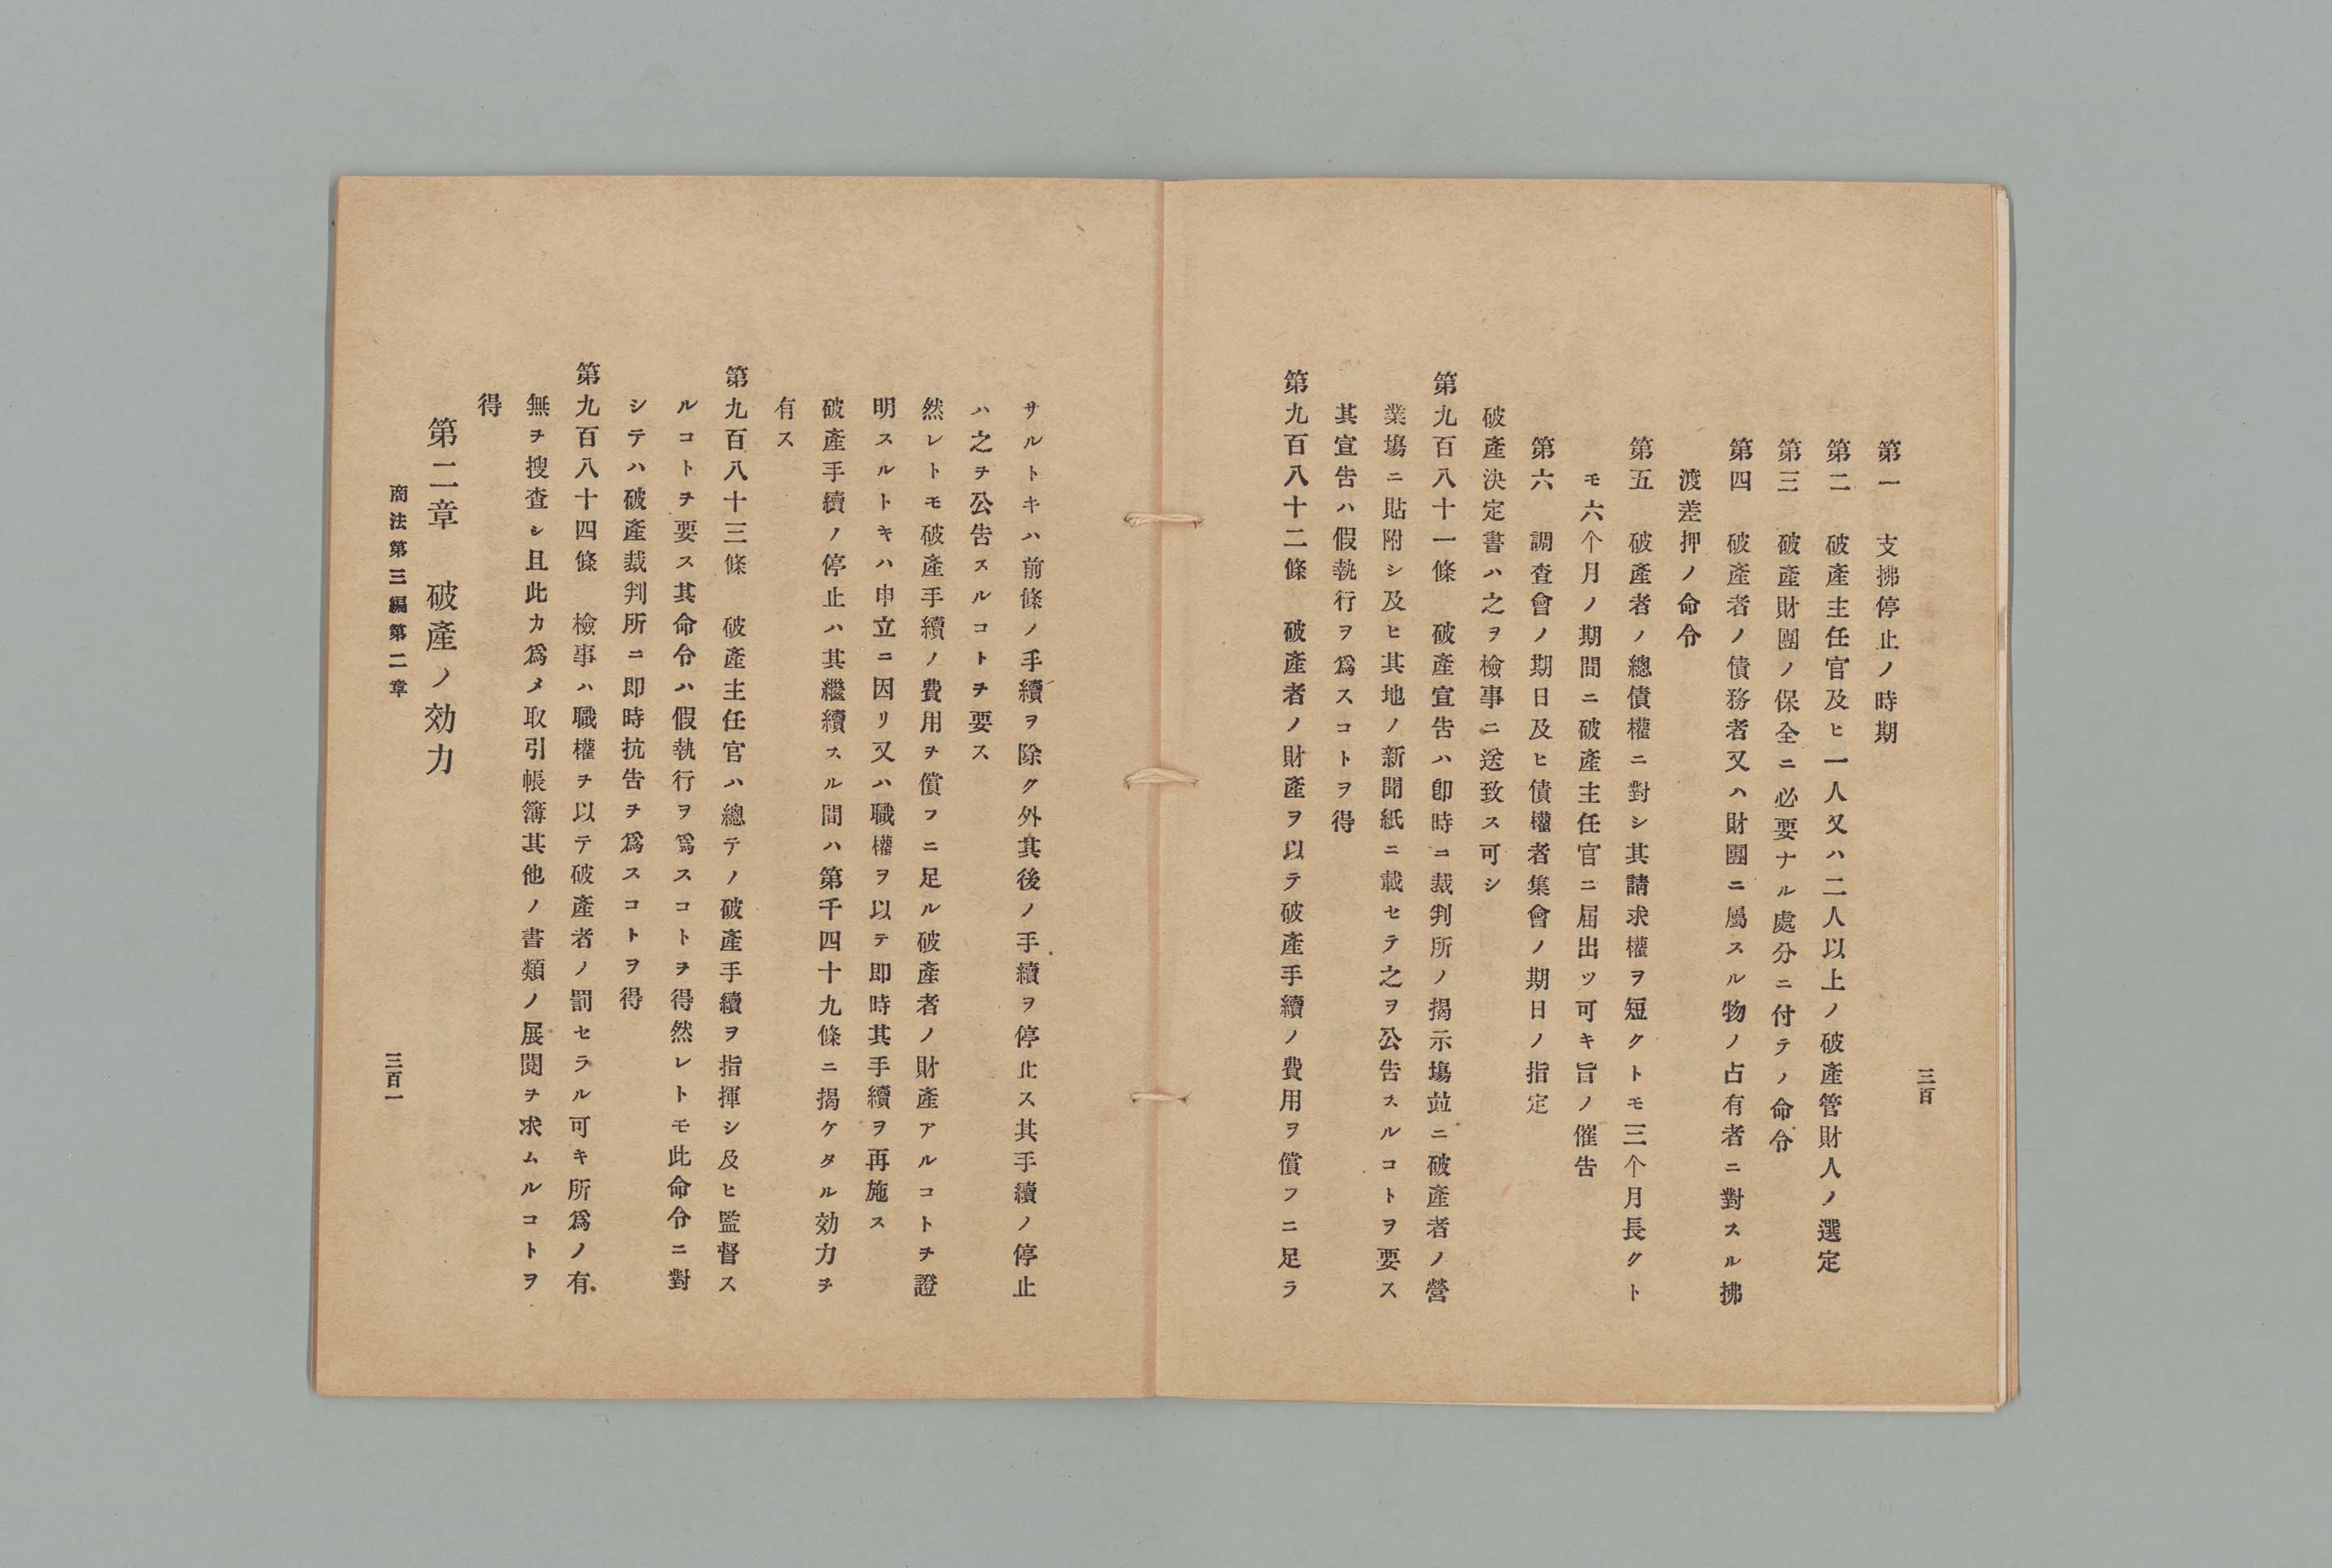 三百
第一　支拂停止ノ時期
第二　破產主任官及ヒ一人又ハ二人以上ノ破產管財人ノ選定
第三　破產財團ノ保全ニ必要ナル處分ニ付テノ命令
第四　破產者ノ債務者又ハ財團ニ屬スル物ノ占有者ニ對スル拂
渡差押ノ命令
第五　破產者ノ總債權ニ對シ其請求權ヲ短クトモ三个月長クト
モ六个月ノ期間ニ破產主任官ニ届出ツ可キ旨ノ催告
第六　調査會ノ期日及ヒ債權者集會ノ期日ノ指定
破產決定書ハ之ヲ檢事ニ送致ス可シ
第九百八十一條　破產宣告ハ卽時ニ裁判所ノ揭示塲並ニ破產者ノ營
業塲ニ貼附シ及ヒ其地ノ新聞紙ニ載セテ之ヲ公告スルコトヲ要ス
其宣告ハ假執行ヲ爲スコトヲ得
第九百八十二條　破產者ノ財產ヲ以テ破產手續ノ費用ヲ償フニ足ラ
サルトキハ前條ノ手續ヲ除ク外其後ノ手續ヲ停止ス其手續ノ停止
ハ之ヲ公告スルコトヲ要ス
然レトモ破產手續ノ費用ヲ償フニ足ル破產者ノ財產アルコトヲ證
明スルトキハ申立ニ因リ又ハ職權ヲ以テ即時其手續ヲ再施ス
破產手續ノ停止ハ其繼續スル間ハ第千四十九條ニ揭ケタル効力ヲ
有ス
第九百八十三條　破產主任官ハ總テノ破產手續ヲ指揮シ及ヒ監督ス
ルコトヲ要ス其命令ハ假執行ヲ爲スコトヲ得然レトモ此命令ニ對
シテハ破產裁判所ニ即時抗告ヲ爲スコトヲ得
第九百八十四條　檢事ハ職權ヲ以テ破產者ノ罰セラル可キ所爲ノ有
無ヲ搜査シ且此カ爲メ取引帳簿其他ノ書類ノ展閱ヲ求ムルコトヲ
得
第二章　破產ノ効力
商法第三編第二章
三百一